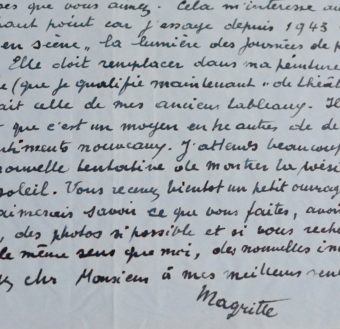 ses que vous aimez. Cela m'intéresse au
haut point car j'essaye depuis 1943
en scène" la lumière des journées de p
Elle doit remplacer dans ma peinture
e (que je qualifie maintenant "de théât
ait celle de mes anciens tableaux. Il
t que c'est un moyen entre autres de de
ntiments nouveaux. J'attends beaucoup
nouvelle tentative de montrer la visi
soleil. Vous recevrez bientôt un petit ouvrag
aimerais savoir ce que vous faites, avoi
, des photos si possible et si vous reche
le même sens que moi, des nouvelles in
ez cher Monsieur à mes meilleurs sen
Magritte